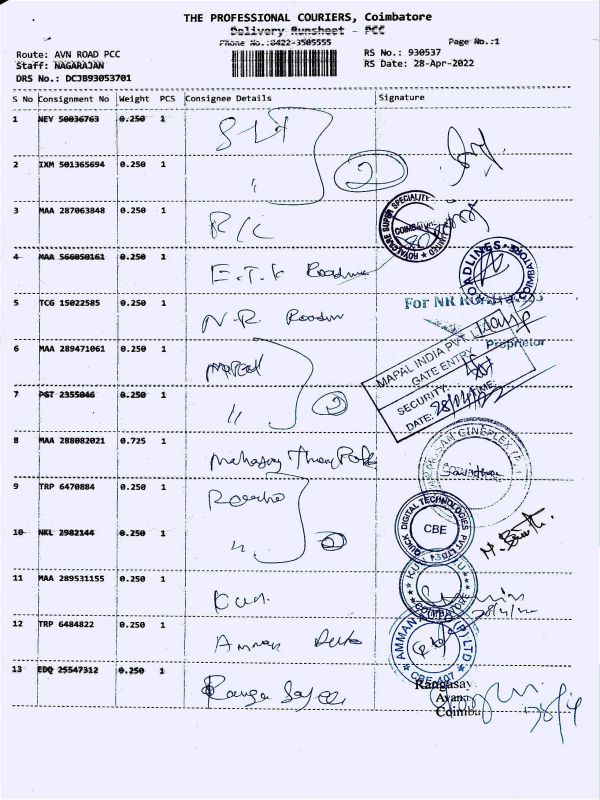 THE PROFESSIONAL COURIERS, Coimbatore
Delivery Runsheet - PCC
Phone No.:0422-3505555
Page No.:1
Route: AVN ROAD PCC
RS No.: 930537
Staff: NAGARAJAN
RS Date: 28-Apr-2022
DRS No.: DCJB93053701
S No Consignment No Weight PCS Consignee Details Signature
1 NEY 50036763 0.250 1
2 IXM 501365694 0.250 1 " 2
3 MAA 287063848 0.250 1 R/C
ROYALCARE SUPER SPECIALITY LIMITED COIMBATORE
4 MAA 566050161 0.250 1 E.T.K Roadlines
ROADLINES COIMBATORE
5 TCG 15022585 0.250 1 N.R. Roadlin
For NR ROADLINES
Proprietor
6 MAA 289471061 0.250 1 Mapal
MAPAL INDIA PVT
GATE ENTRY
SECURITY:
DATE: 28/04/22 TIME:
7 PGT 2355046 0.250 1 " 2
8 MAA 288082021 0.725 1
CINEPLEX
9 TRP 6470884 0.250 1
QUICK DIGITAL TECHNOLOGIES PVT LTD
CBE
10 NKL 2982144 0.250 1 " 2
11 MAA 289531155 0.250 1
COIMBATORE
28/4/22
12 TRP 6484822 0.250 1 Amman
AMMAN (P) LTD
CBE-407
13 EDQ 25547312 0.250 1 Ranga Sayee
Rangasay
Avana
Coimba
28/4